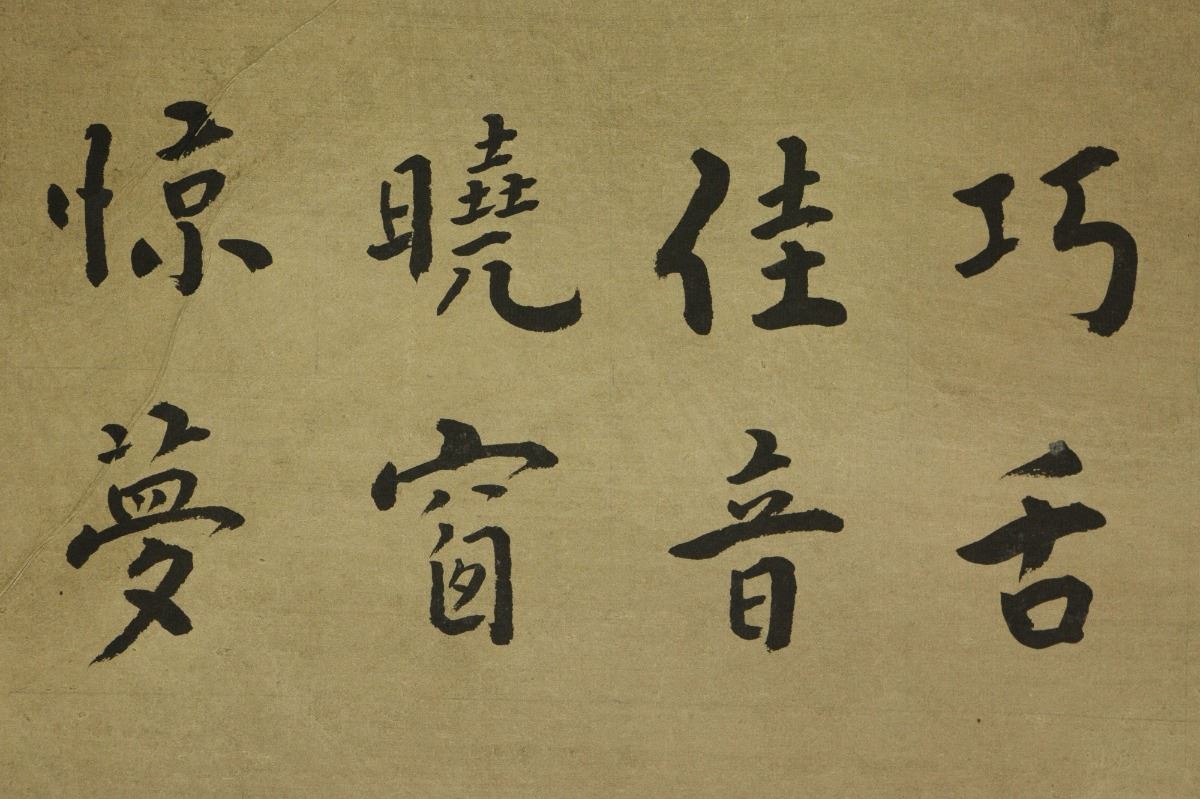 巧舌
佳音
曉窗
惊夢